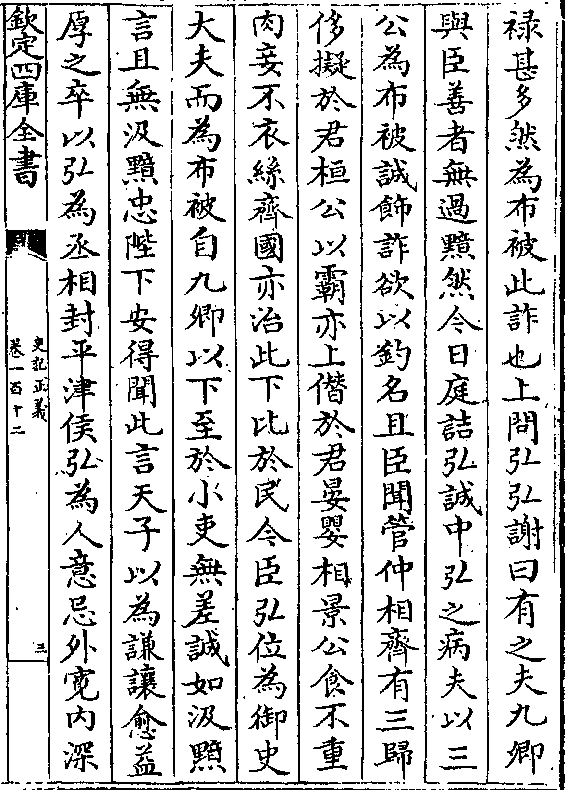 禄甚多然為布被此詐也上問弘弘謝曰有之夫九卿
與臣善者無過黯然今日庭詰弘誠中弘之病夫以三
公為布被誠飾詐欲以釣名且臣聞管仲相齊有三歸
侈擬於君桓公以霸亦上僭於君晏嬰相景公食不重
肉妾不衣絲齊國亦治此下比於民今臣弘位為御史
大夫而為布被自九卿以下至於小吏無差誠如汲黯
言且無汲黯忠陛下安得聞此言天子以為謙讓愈益
厚之卒以弘為丞相封平津侯弘為人意忌外寛内深
欽定四庫全書
史記正義
卷一百十二
三